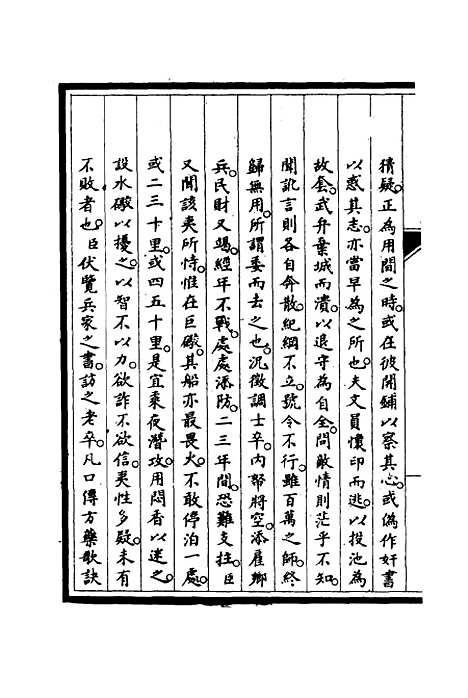 猜疑。正為用間之時。或在彼開鋪以察其心。或偽作奸書
以惑其志。亦當早為之所也。夫文員懷印而逃。以投池為
故套。武弁棄城而潰。以退守為自全。問敵情則茫乎不知。
聞訛言則各自奔散。紀綱不立。號令不行。雖百萬之師。終
歸無用。所謂委而去之也。況徵調士卒。內帑將空。添雇鄉
兵。民財又竭。經年不戰。處處添防。二三年間。恐難支拄。臣
又聞該夷所恃。惟在巨礮。其船亦最畏火。不敢停泊一處。
或二三十里。或四五十里。是宜乘夜潛攻。用悶香以迷之。
設水礮以擾之。以智不以力。欲詐不欲信。夷性多疑。未有
不敗者也。臣伏覽兵家之書。訪之老卒。凡口傳方藥歌訣